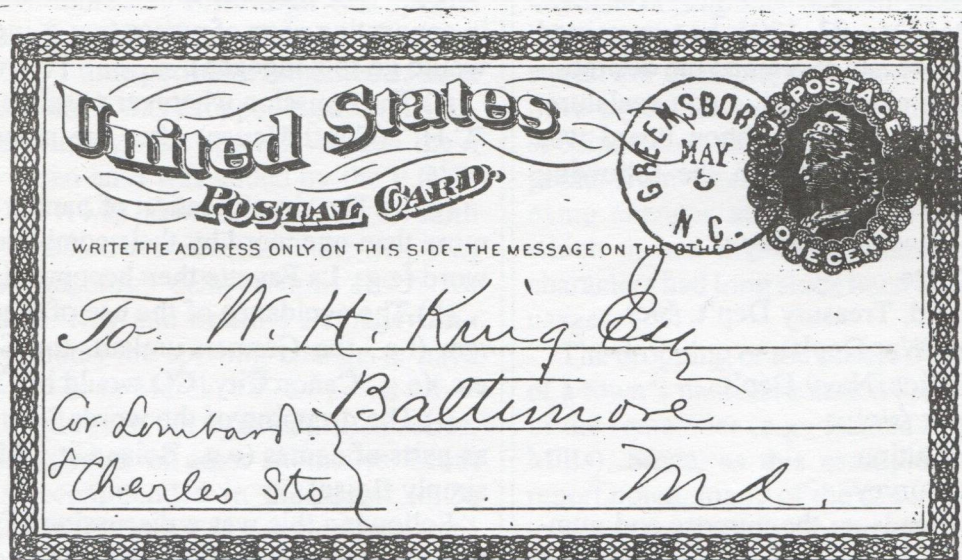 United States
POSTAL CARD.
GREENSBORO
MAY
N.C.
U.S. POSTAGE
ONE CENT
WRITE THE ADDRESS ONLY ON THIS SIDE-THE MESSAGE ON THE OTHER
To W. H. King Esq
Baltimore
Cor Lombard &
Charles Sts
Md.